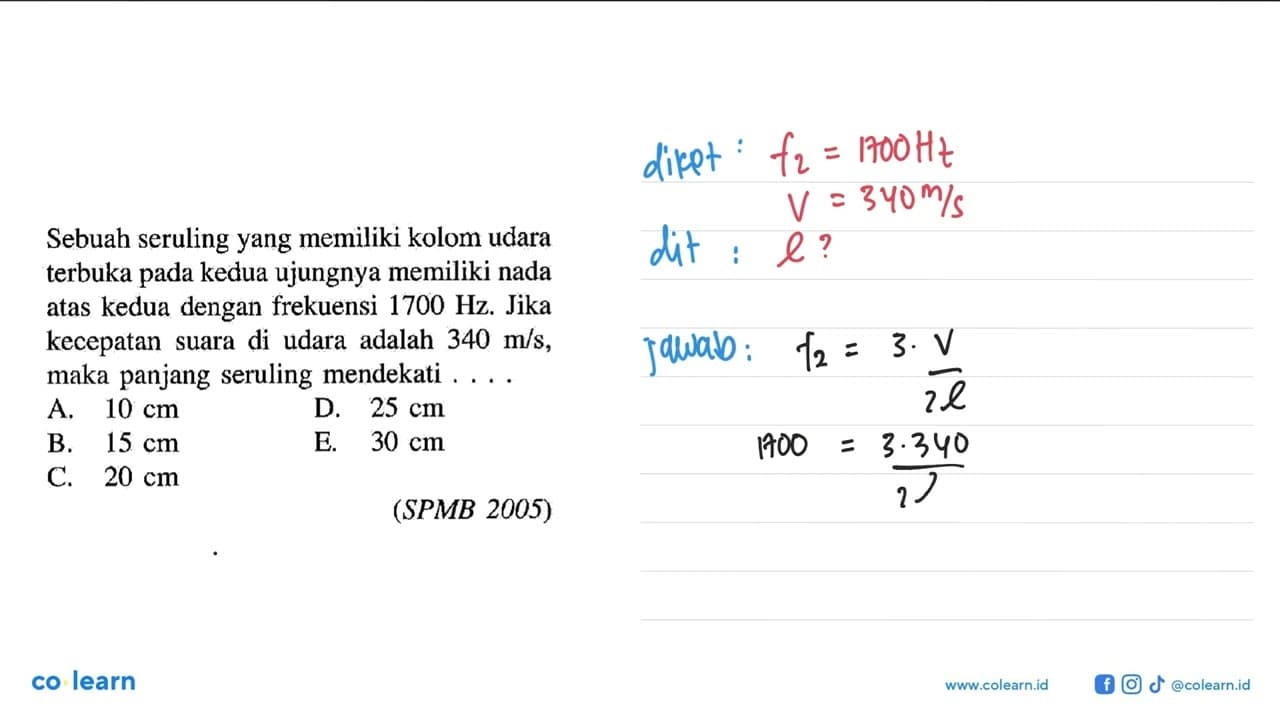 Sebuah seruling yang memiliki kolom udara
terbuka pada kedua ujungnya memiliki nada
atas kedua dengan frekuensi 1700 Hz. Jika
kecepatan suara di udara adalah 340 m/s,
maka panjang seruling mendekati . . . .
A. 10 cm D. 25 cm
B. 15 cm E. 30 cm
C. 20 cm
(SPMB 2005)
diket : f₂ = 1700 Hz
V = 340 m/s
dit : l ?
jawab : f₂ = 3. V
2l
1700 = 3.340
2
co learn
www.colearn.id @colearn.id